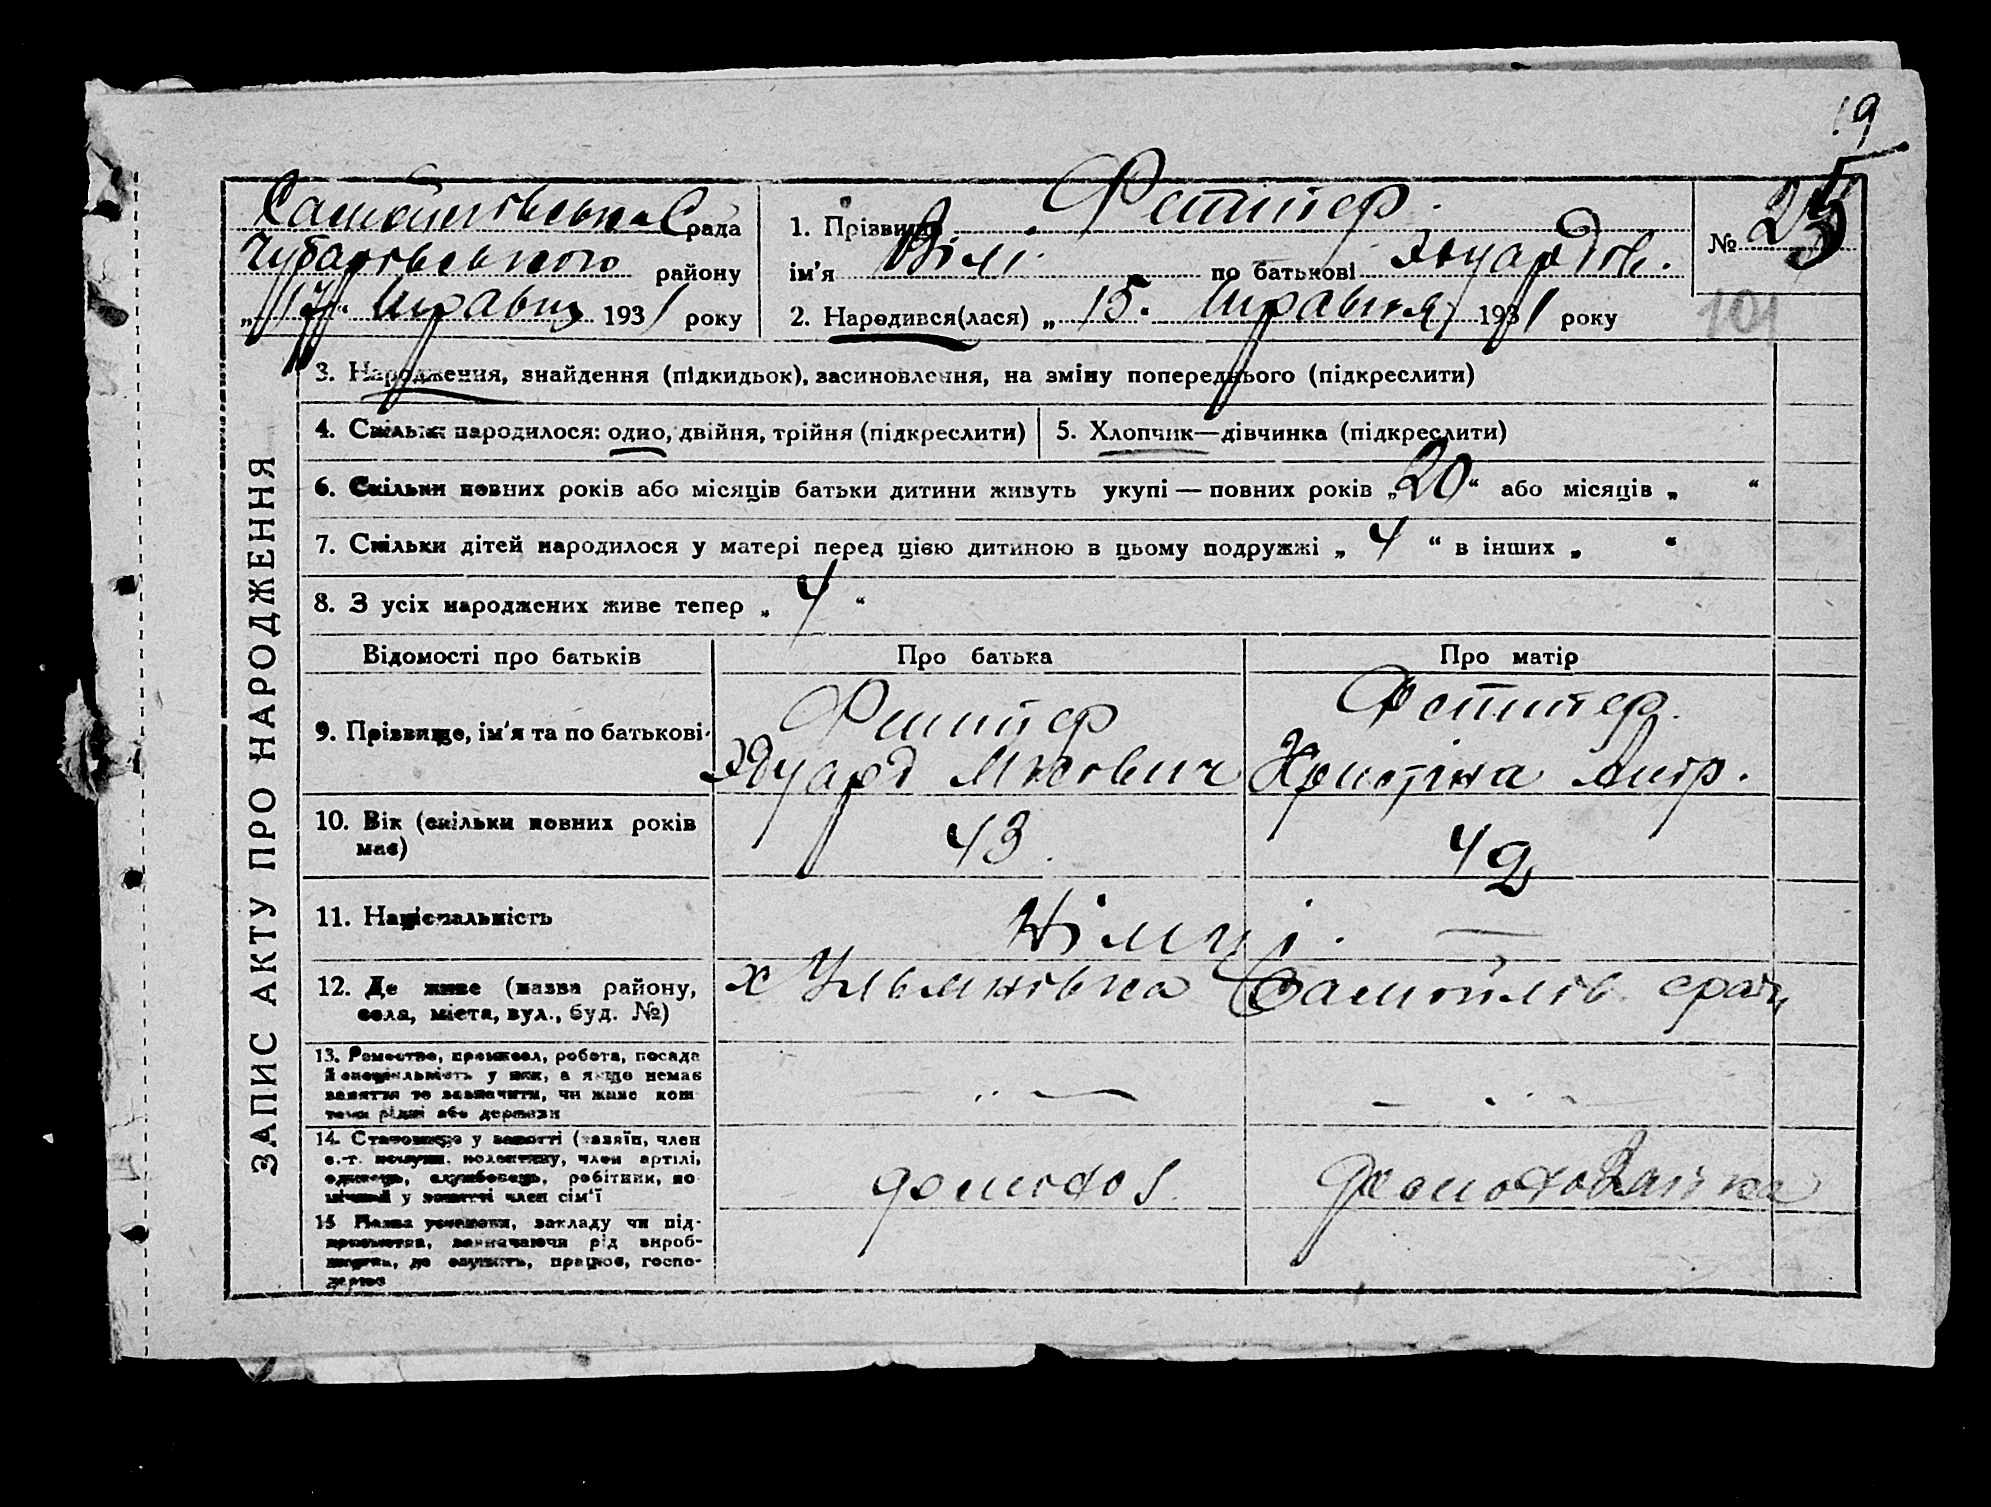 19
Самойлівська С рада
Чубарівського району
„17“ травня 1931 року
1. Прізвище Фетттер.
ім'я Вілі по батькові Эдуардов.
2. Народився(лася) „15“ травня 1931 року
№ 25
101
ЗАПИС АКТУ ПРО НАРОДЖЕННЯ
3. Народження, знайдення (підкидьок), засиновлення, на зміну попереднього (підкреслити)
4. Скільки народилося: одно, двійня, трійня (підкреслити)
5. Хлопчик—дівчинка (підкреслити)
6. Скільки повних років або місяців батьки дитини живуть укупі — повних років „20“ або місяців „ “
7. Скільки дітей народилося у матері перед цією дитиною в цьому подружжі „4“ в інших „ “
8. З усіх народжених живе тепер „4“
Відомості про батьків Про батька Про матір
9. Прізвище, ім'я та по батькові
Эдуард
Христіна
10. Вік (скільки повних років має) 43. 42
11. Національність Німці. —
12. Де живе (назва району, села, міста, вул., буд. №) х Ульянівка Самойлів. сради
13. Ремество, промисел, робота, посада
й спеціяльність у них, а якщо немає
заняття то зазначити, чи живе кош-
тами рідні або держави
14. Становище у занятті (хазяїн, член
с.-г. комуни, колективу, член артілі,
одинець, службовець, робітник, по-
мічний у занятті член сім'ї
домохоз домохозайка
15 Назва установи, закладу чи під-
приємства, зазначаючи рід вироб-
ництва, де служить, працює, госпо-
дарює